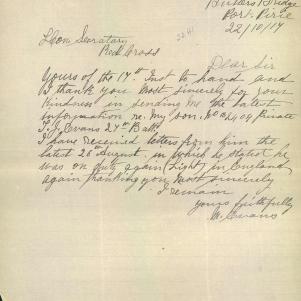 Butlers Bridge
Port Pirie
22/10/17
Hon Secretary
Red Cross
Dear Sir
Yours of the 17th Inst to hand and
I thank you most sincerely for your
kindness in sending me the latest
information re my son No 2404 Private
T. J. Evans 27th Batt
I have received letters from him the
latest 26th August in which he states he
was on duty again (Light) in England
again thanking you most sincerely
I remain
yours faithfully
W. Evans